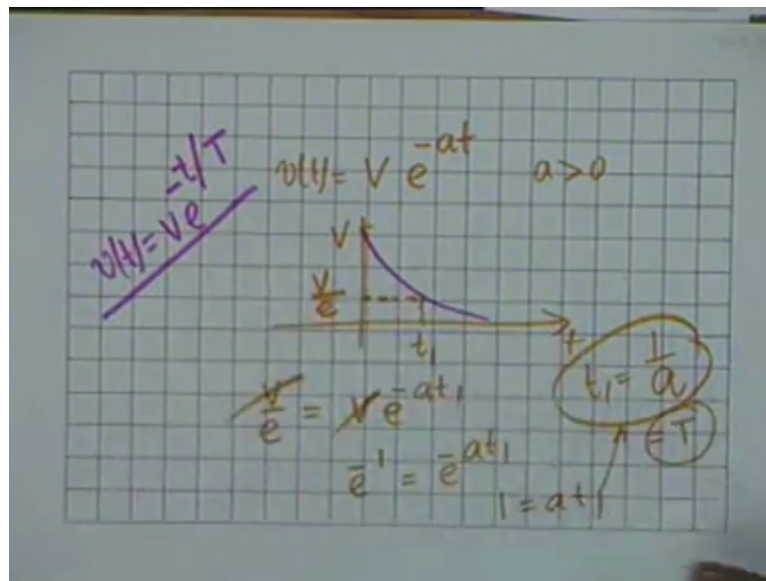 v(t) = V e^{-at} a > 0
v(t) = V e^{-t/T}
V
V/e
t₁
t
V/e = V e^{-at₁}
e^{-1} = e^{-at₁}
1 = at₁
t₁ = 1/a
= T